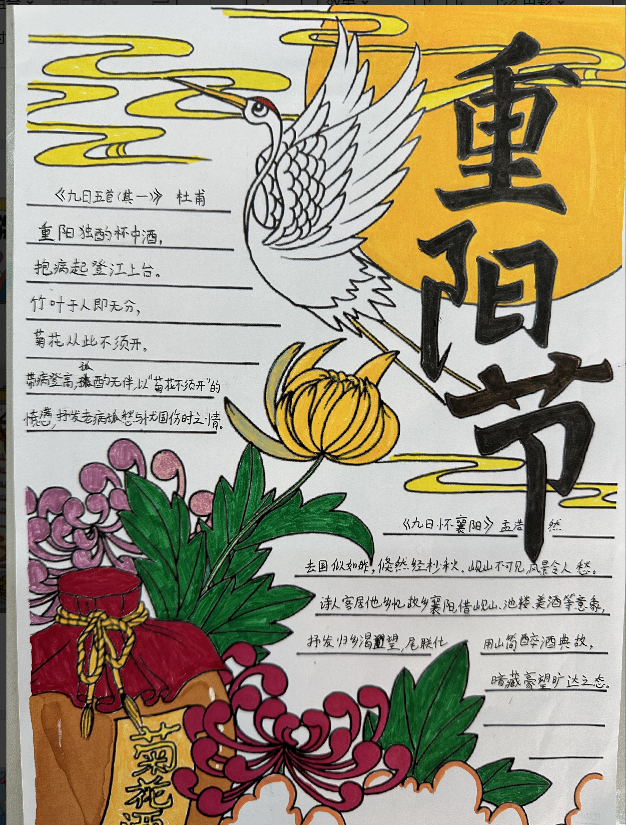 重阳节
《九日五首(其一)》 杜甫
重阳独酌杯中酒,
抱病起登江上台。
竹叶于人即无分,
菊花从此不须开。
带病登高,孤酌无伴,以“菊花不须开”的
愤懑,抒发老病孤愁与忧国伤时之情。
《九日怀襄阳》 孟浩然
去国似如昨,倏然经杪秋。岘山不可见,风景令人愁。
诗人客居他乡忆故乡襄阳,借岘山、池楼、美酒等意象,
抒发归乡渴望,尾联化 用山简醉酒典故,
暗藏豪望旷达之态。
菊花酒